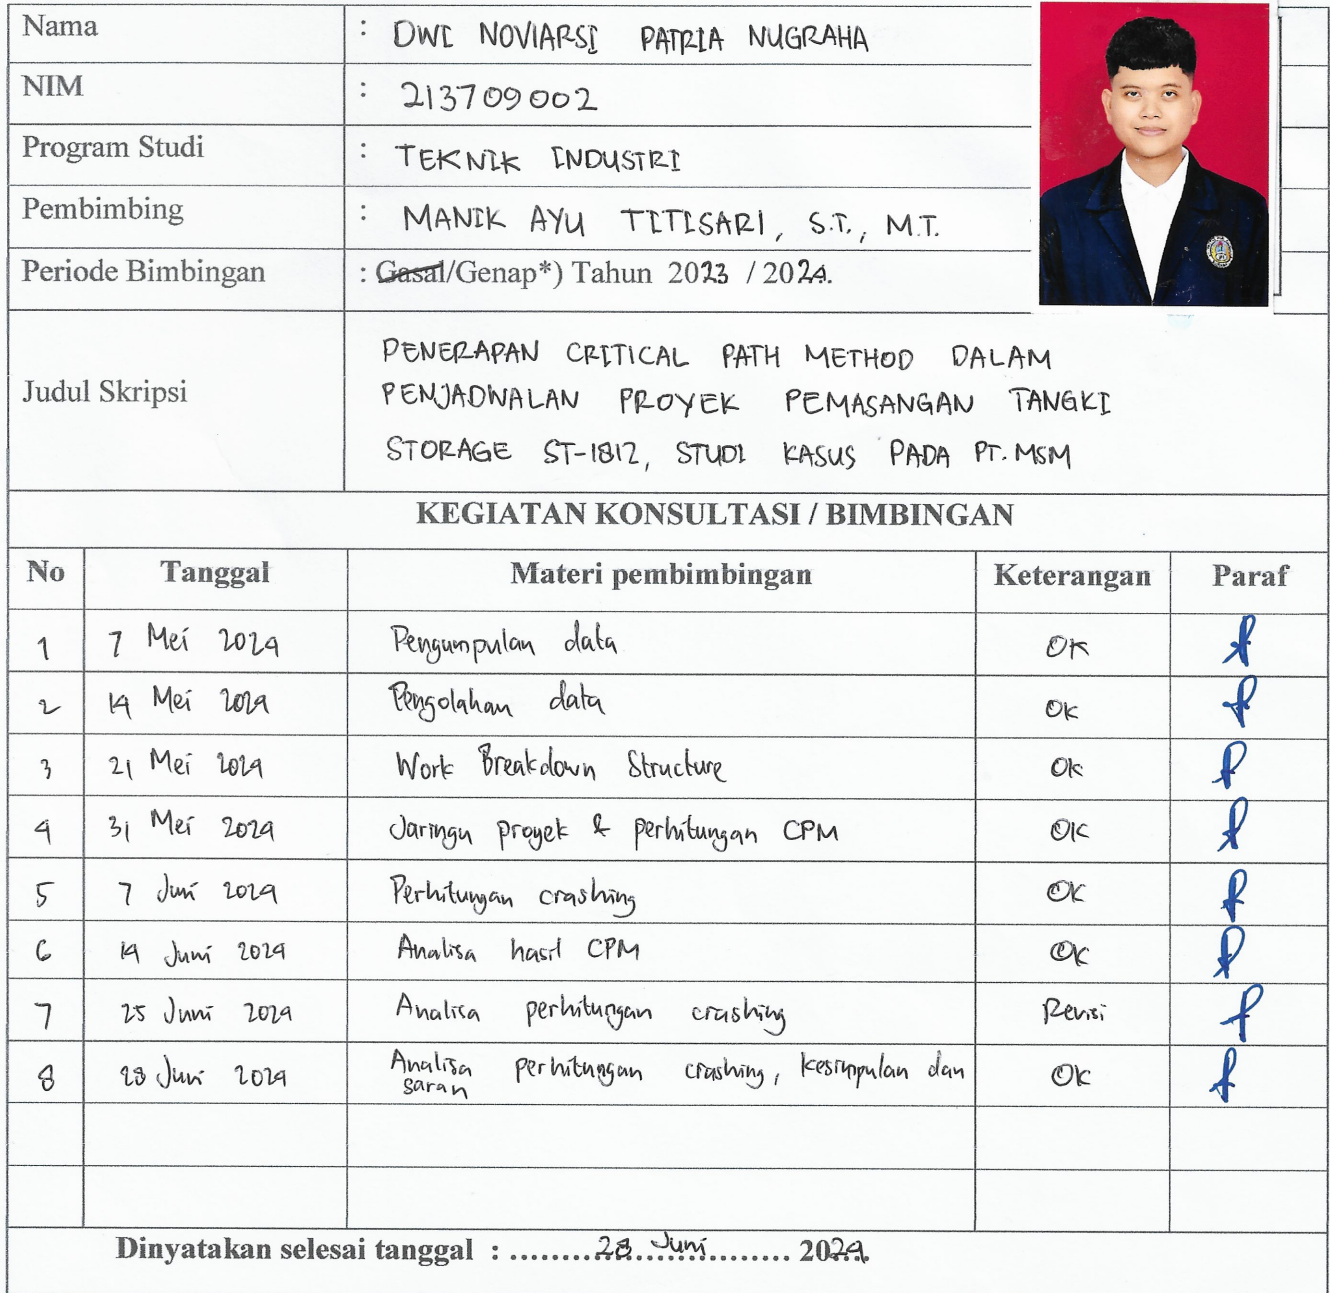 Nama : DWI NOVIARSI PATRIA NUGRAHA
NIM : 213709002
Program Studi : TEKNIK INDUSTRI
Pembimbing : MANIK AYU TITISARI, S.T., M.T.
Periode Bimbingan : Gasal/Genap*) Tahun 2023 / 2024.
Judul Skripsi
PENERAPAN CRITICAL PATH METHOD DALAM
PENJADWALAN PROYEK PEMASANGAN TANGKI
STORAGE ST-1812, STUDI KASUS PADA PT. MSM
KEGIATAN KONSULTASI / BIMBINGAN
No Tanggal Materi pembimbingan Keterangan Paraf
1 7 Mei 2024 Pengumpulan data OK
2 14 Mei 2024 Pengolahan data Ok
3 21 Mei 2024 Work Breakdown Structure Ok
4 31 Mei 2024 Jaringn proyek & perhitungan CPM OK
5 7 Juni 2024 Perhitungan crashing OK
6 14 Juni 2024 Analisa hasil CPM OK
7 25 Juni 2024 Analisa perhitungan crashing Revisi
8 28 Juni 2024 Analisa perhitungan crashing, kesimpulan dan saran OK
Dinyatakan selesai tanggal : ........28 Juni........ 2024.